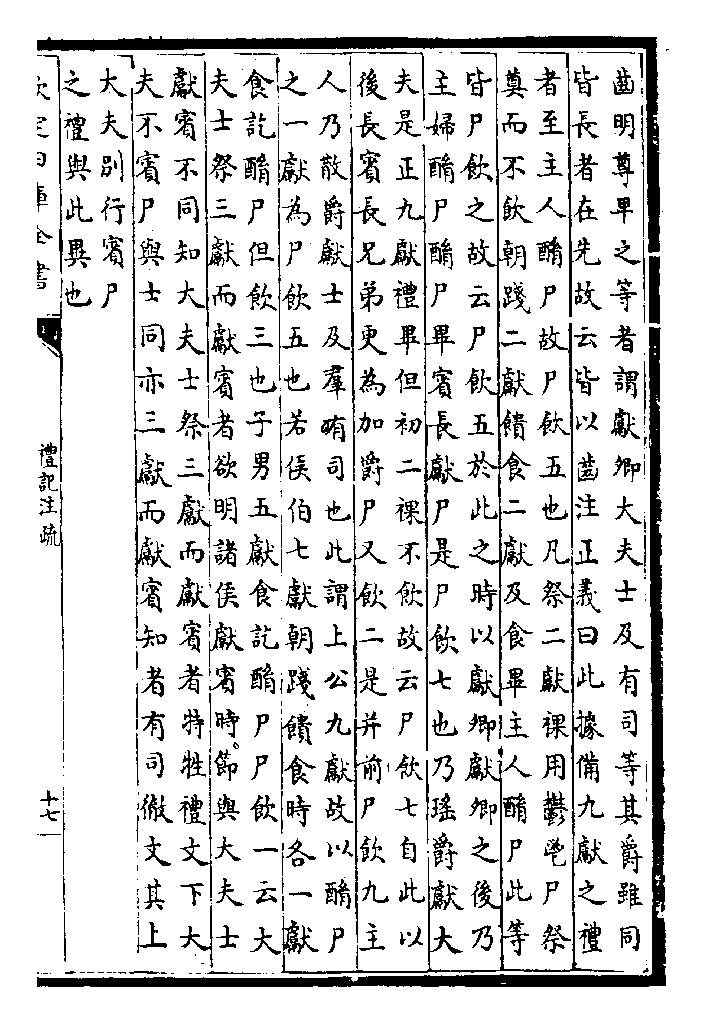 齒明尊卑之等者謂獻卿大夫士及有司等其爵雖同
皆長者在先故云皆以齒注正義曰此據備九獻之禮
者至主人酳尸故尸飲五也凡祭二獻祼用鬱鬯尸祭
奠而不飲朝踐二獻饋食二獻及食畢主人酳尸此等
皆尸飲之故云尸飲五於此之時以獻卿獻卿之後乃
主婦酳尸酳尸畢賓長獻尸是尸飲七也乃瑤爵獻大
夫是正九獻禮畢但初二祼不飲故云尸飲七自此以
後長賓長兄弟更為加爵尸又飲二是并前尸飲九主
人乃散爵獻士及羣有司也此謂上公九獻故以酳尸
之一獻為尸飲五也若侯伯七獻朝踐饋食時各一獻
食訖酳尸但飲三也子男五獻食訖酳尸尸飲一云大
夫士祭三獻而獻賓者欲明諸侯獻賓時節與大夫士
獻賓不同知大夫士祭三獻而獻賓者特牲禮文下大
夫不賓尸與士同亦三獻而獻賓知者有司徹文其上
大夫別行賓尸
之禮與此異也
欽定四庫全書
禮記注疏
十七